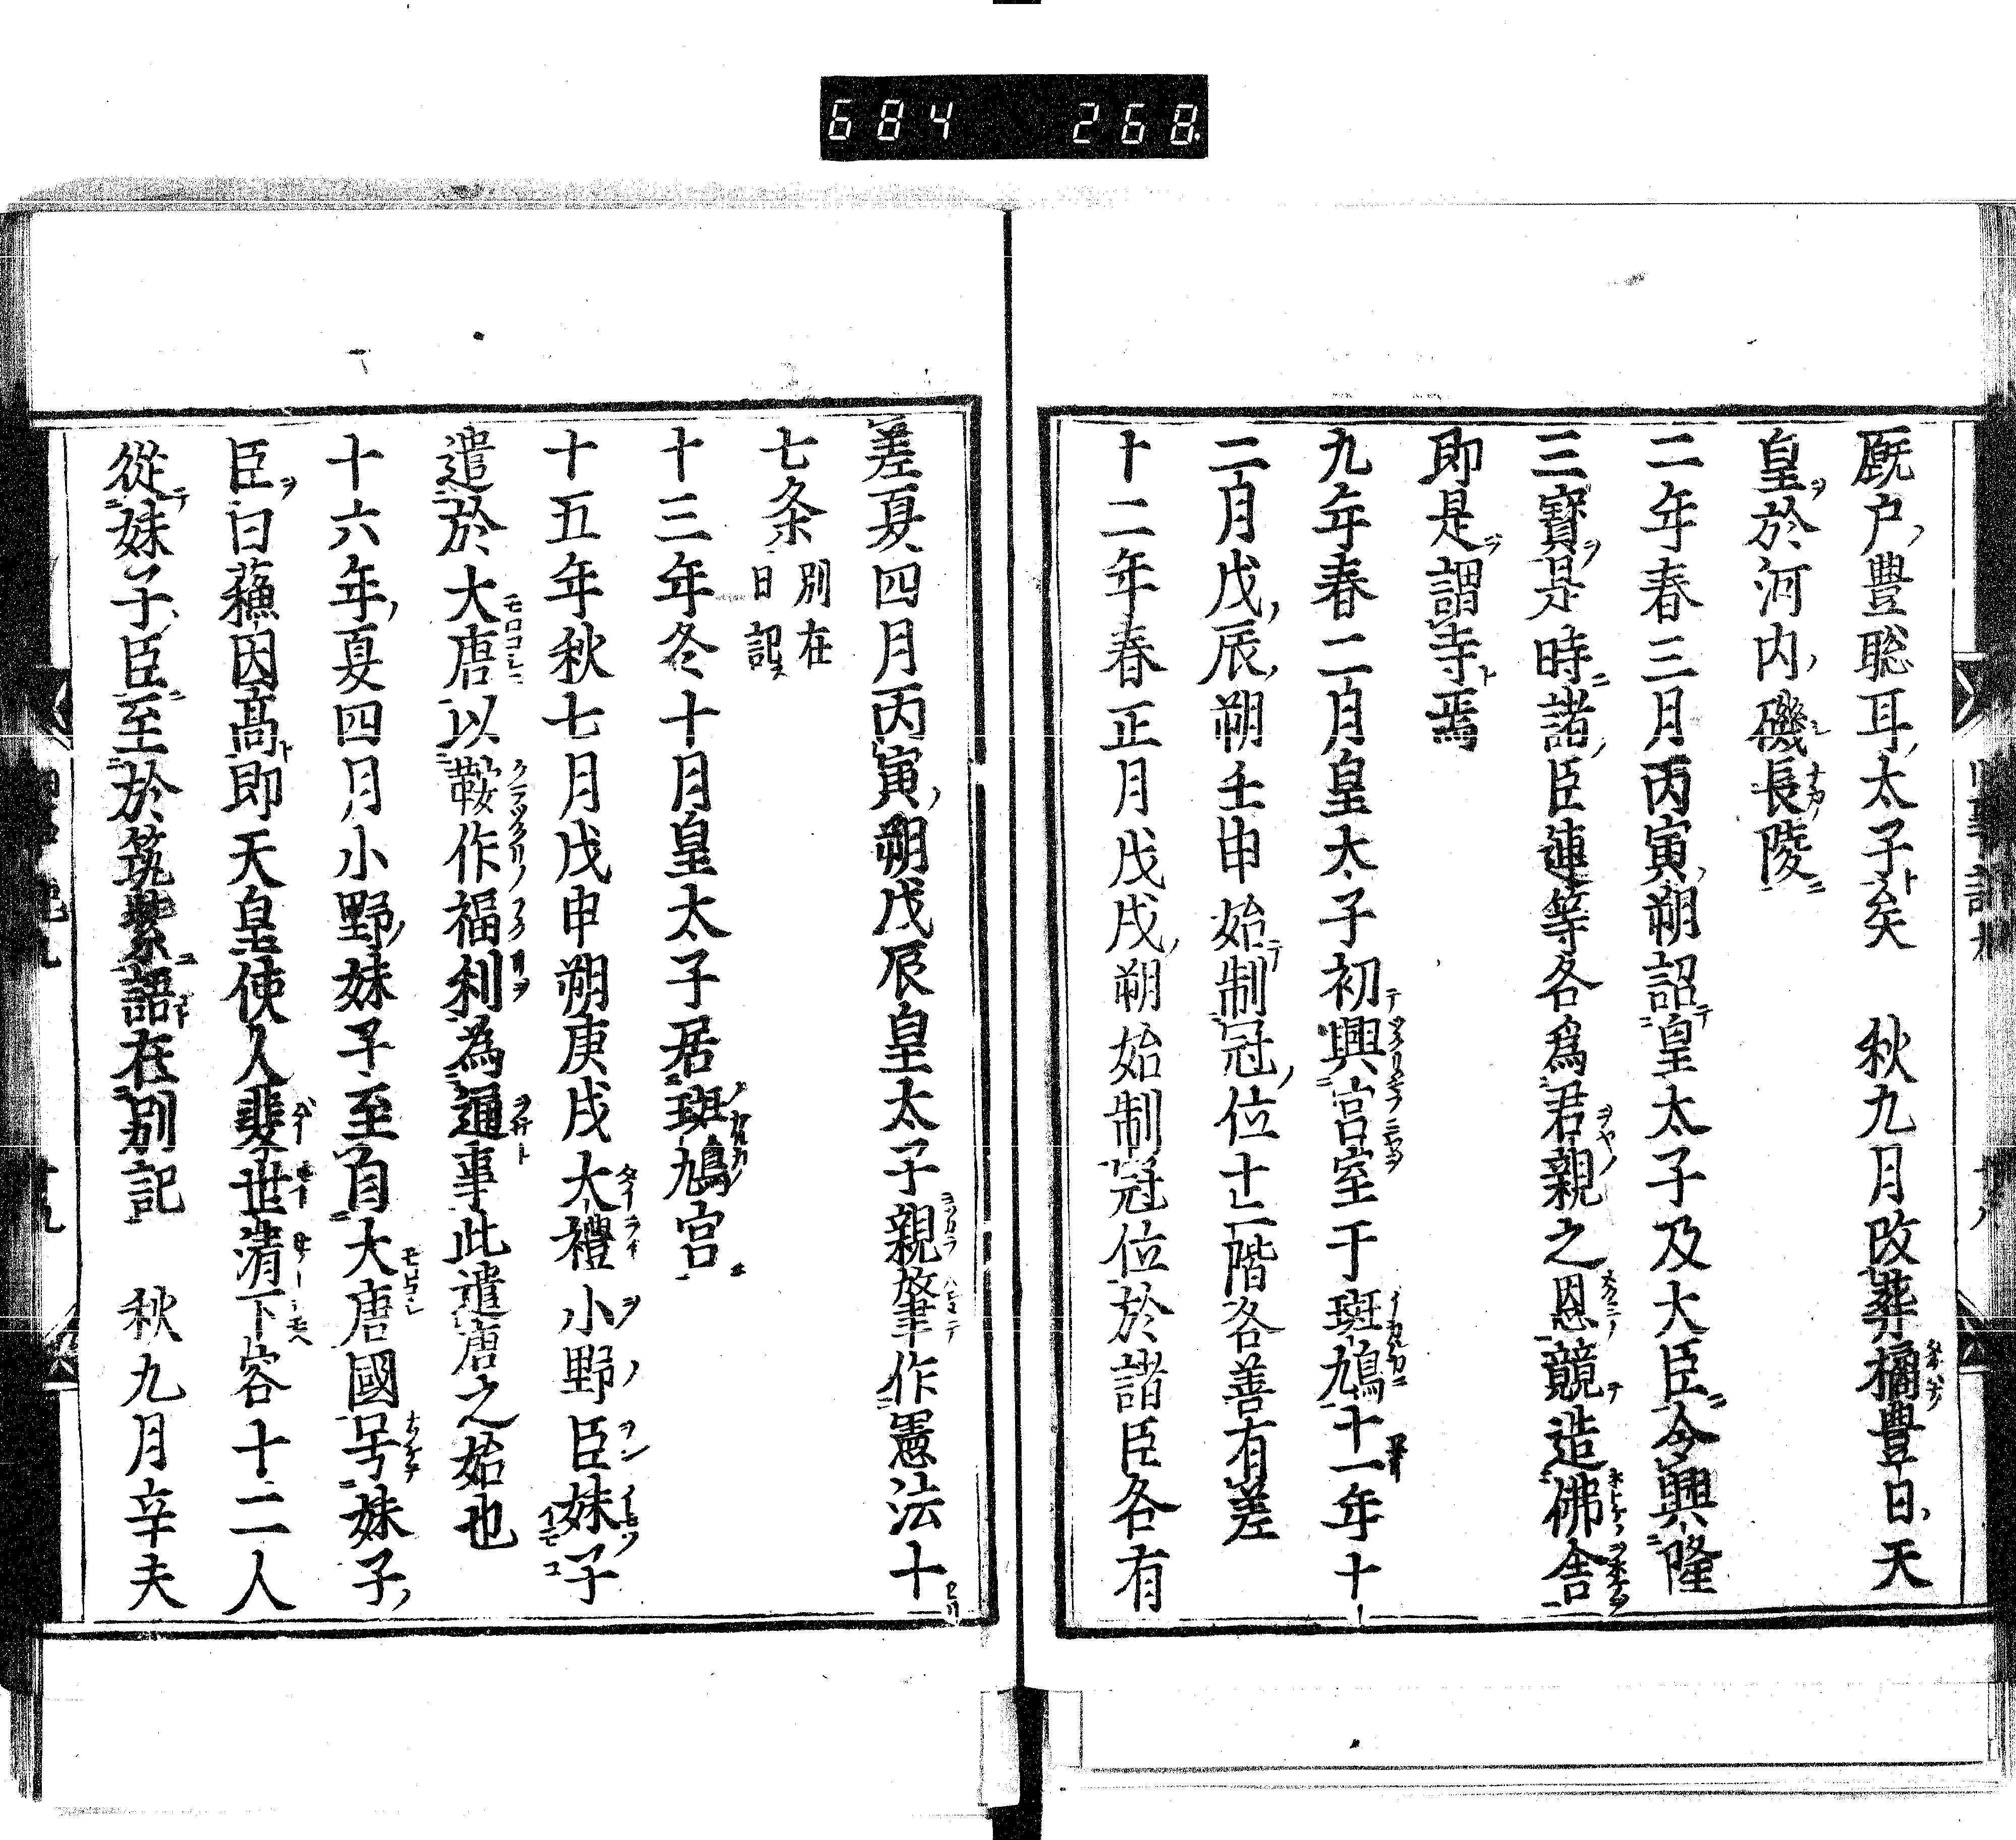 684 268
厩戸豊聡耳太子矣　秋九月改葬橘豊日天
皇於河内磯長陵
二年春三月丙寅朔詔皇太子及大臣令興隆
三寳是時諸臣連等各爲君親之恩競造佛舎
即是謂寺焉
九年春二月皇太子初興宮室于斑鳩十一年十
二月戊辰朔壬申始制冠位十二階各善有差
十二年春正月戊戌朔始制冠位於諸臣各有
差夏四月丙寅朔戊辰皇太子親肇作憲法十
七条別在日記
十三年冬十月皇太子居斑鳩宮
十五年秋七月戊申朔庚戌大禮小野臣妹子
遣於大唐以鞍作福利為通事此遣唐之始也
十六年夏四月小野妹子至自大唐國号妹子
臣曰蘓因高即天皇使人裴世清下客十二人
從妹子臣至於筑紫語在別記　秋九月辛夫